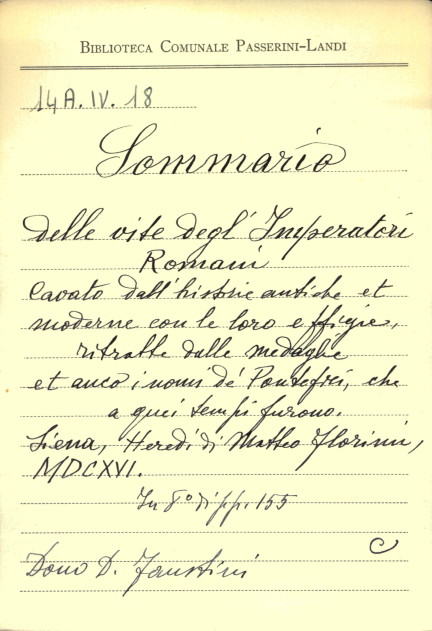 BIBLIOTECA COMUNALE PASSERINI-LANDI
14A.IV.18
Sommario
delle vite degl' Imperatori
Romani
Cavato dall'historie antiche et
moderne con le loro effigie,
ritratte dalle medaglie
et anco i nomi de' Pontefici, che
a quei tempi furono.
Siena, Heredi di Matteo Florimi,
MDCXVI.
In 8° di pp. 155
C
Dono D. Faustini